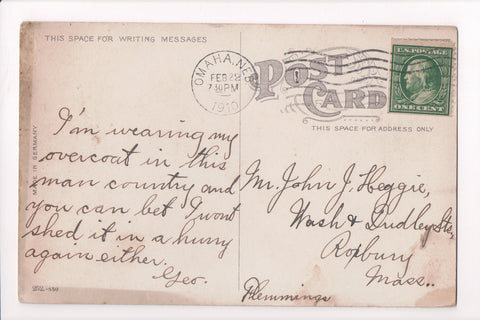 THIS SPACE FOR WRITING MESSAGES
OMAHA, NEB
FEB 22
7 30 PM
1910
POST
CARD
U.S. POSTAGE
ONE CENT
THIS SPACE FOR ADDRESS ONLY
MADE IN GERMANY
I'm wearing my
overcoat in this
man country and
you can bet I wont
shed it in a hurry
again either.
Geo.
Mr. John J. Heggie,
Wash & Dudley Sts,
Roxbury
Mass.
Flemmings